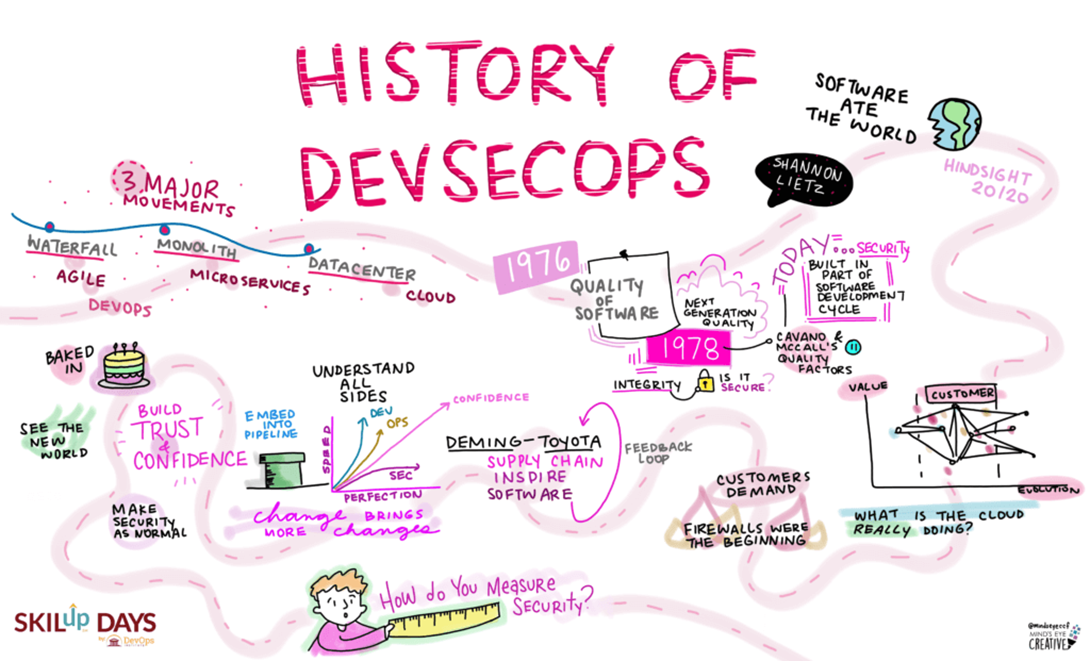 HISTORY OF
DEVSECOPS
SOFTWARE
ATE
THE WORLD
SHANNON
LIETZ
HINDSIGHT
20/20
3 MAJOR
MOVEMENTS
WATERFALL
AGILE
DEVOPS
MONOLITH
MICROSERVICES
DATACENTER
CLOUD
1976
QUALITY
OF
SOFTWARE
NEXT
GENERATION
QUALITY
1978
INTEGRITY
IS IT
SECURE?
TODAY... SECURITY
BUILT IN
PART OF
SOFTWARE
DEVELOPMENT
CYCLE
CAVANO &
MCCALL'S
QUALITY
FACTORS
BAKED
IN
SEE THE
NEW
WORLD
BUILD
TRUST
&
CONFIDENCE
MAKE
SECURITY
AS NORMAL
EMBED
INTO
PIPELINE
UNDERSTAND
ALL
SIDES
SPEED
DEV
OPS
CONFIDENCE
SEC
PERFECTION
change BRINGS
MORE changes
DEMING-TOYOTA
SUPPLY CHAIN
INSPIRE
SOFTWARE
FEEDBACK
LOOP
CUSTOMERS
DEMAND
FIREWALLS WERE
THE BEGINNING
VALUE
CUSTOMER
EVOLUTION
WHAT IS THE CLOUD
REALLY DOING?
HOW do YOU MEASURE
SECURITY?
SKILup DAYS
by DevOps
@mindseyeccf
MIND'S EYE
CREATIVE